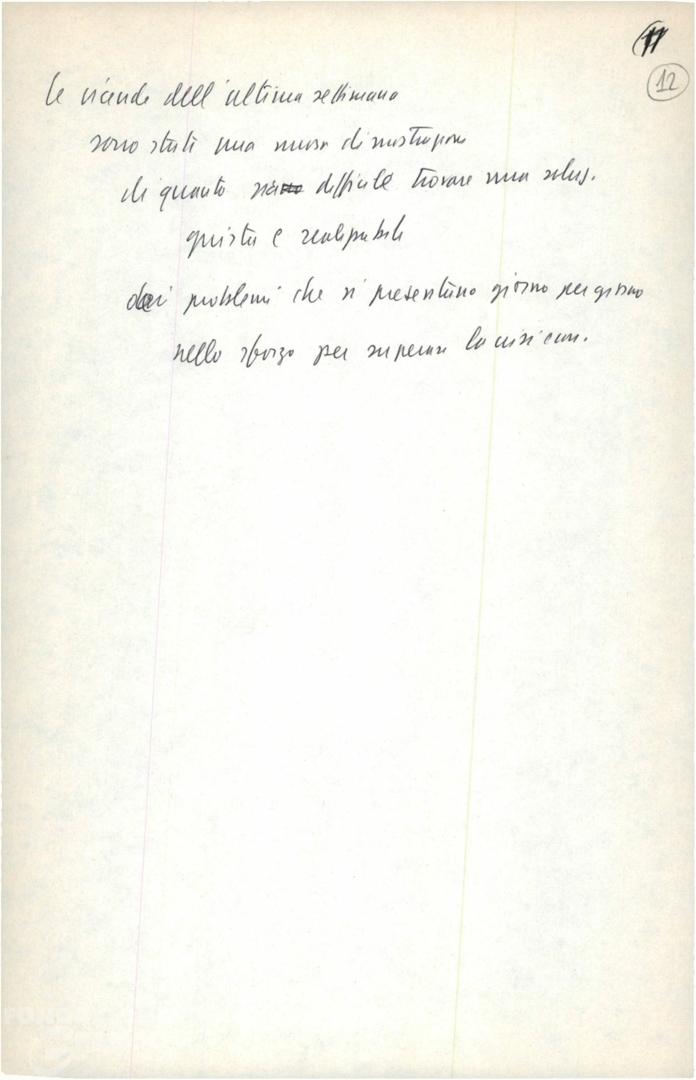 12
Le vicende dell'ultima settimana
sono state una nuova dimostrazione
di quanto sia difficile trovare una soluz.
giusta e realizzabile
dei problemi che si presentano giorno per giorno
nello sforzo per superare la crisi econ.